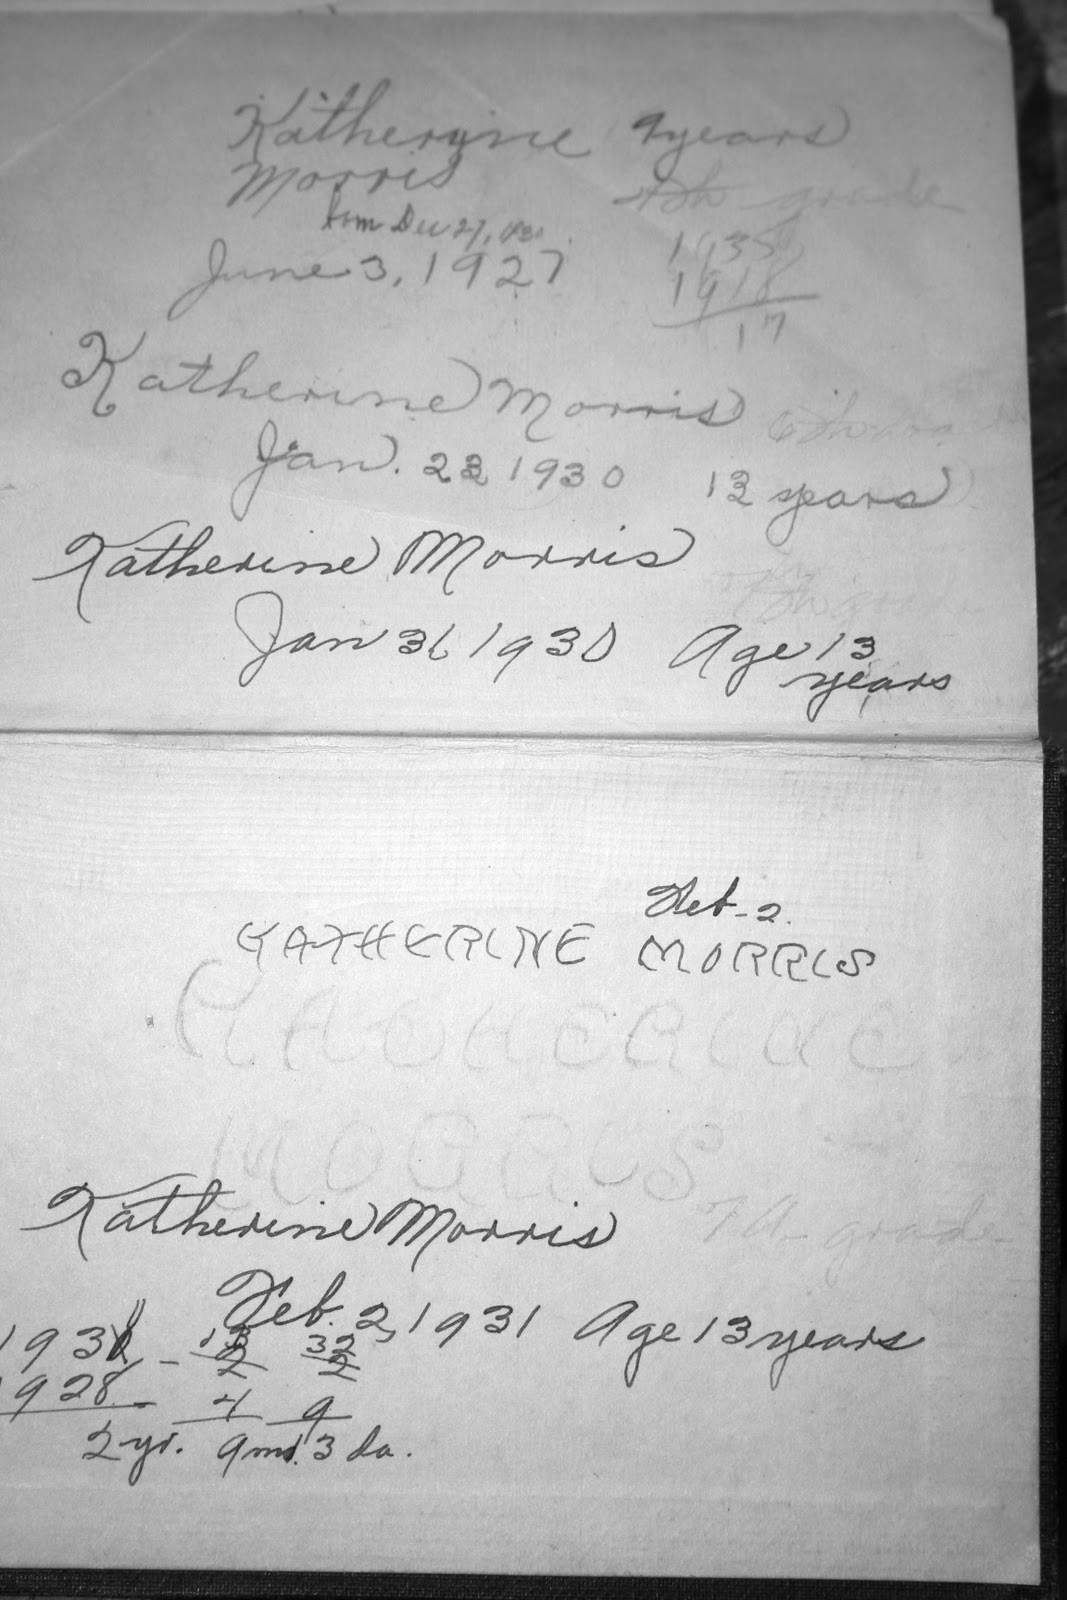 Katheryine 9 years
Morris
grade
born Dec 27,
1935
June 3, 1927
1918
17
Katherine Morris
Jan. 22 1930 12 years
Katherine Morris
grade
Jan 31 1930 Age 13
years
Feb. 2.
KATHERINE MORRIS
KATHERINE
MORRIS
Katherine Morris
7A grade
Feb. 2, 1931 Age 13 years
1931 - 13 32
2 2
1928 - 4 9
2 yr. 9 mo. 3 da.